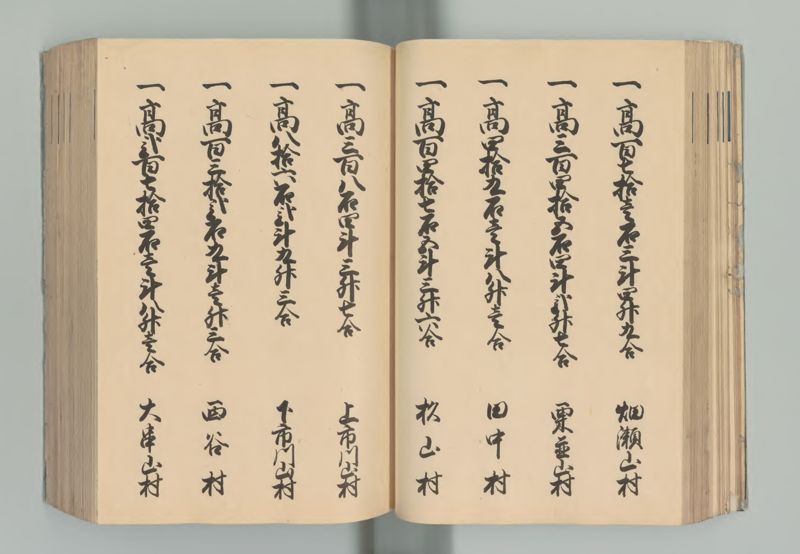 一高百七拾壱石三斗四升九合 畑瀬山村
一高三百四拾五石四斗弐升七合 栗並山村
一高四拾九石壱斗八升壱合 田中村
一高百四拾七石五斗三升六合 松山村
一高三百八石四斗三升七合 上市川村
一高八拾六石弐斗九升三合 下市川山村
一高百三拾弐石九斗壱升三合 西谷村
一高弐百七拾四石壱斗八升壱合 大串山村